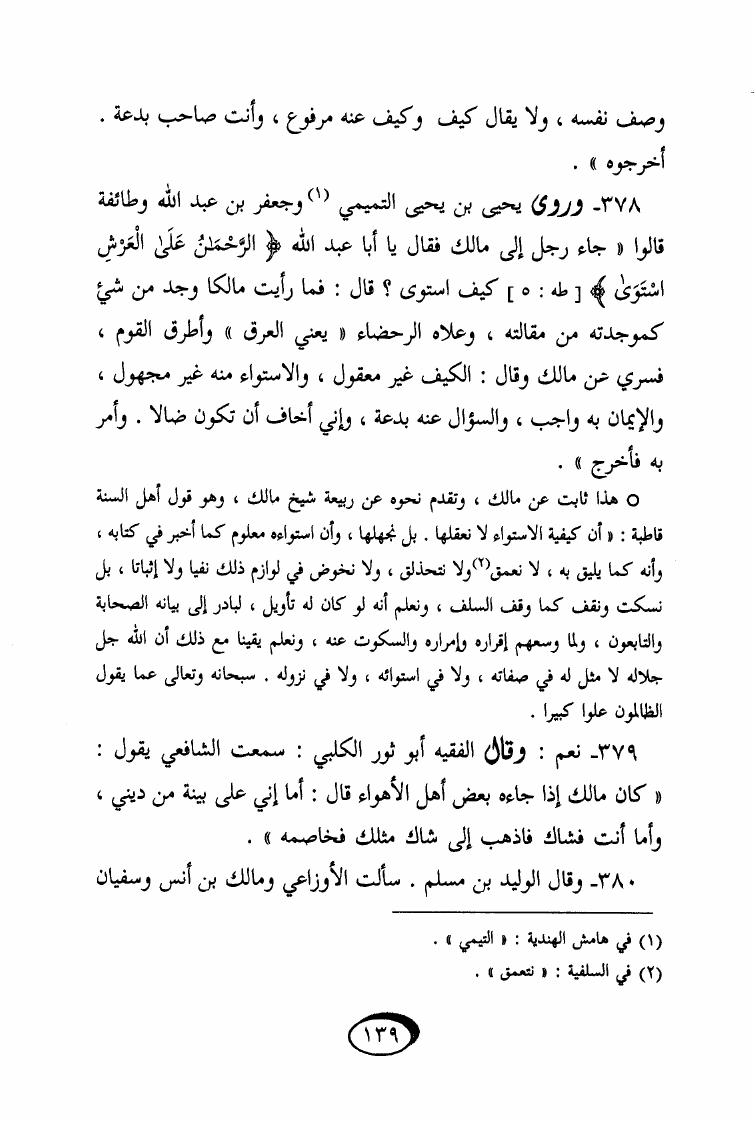 وصف نفسه ، ولا يقال كيف وكيف عنه مرفوع ، وأنت صاحب بدعة .
أخرجوه » .
٣٧٨- وروى يحيى بن يحيى التميمي (١) وجعفر بن عبد الله وطائفة
قالوا « جاء رجل إلى مالك فقال يا أبا عبد الله ﴿ الرَّحْمَـٰنُ عَلَى الْعَرْشِ
اسْتَوَىٰ ﴾ [ طه : ٥ ] كيف استوى ؟ قال : فما رأيت مالكا وجد من شيْ
كموجدته من مقالته ، وعلاه الرحضاء « يعني العرق » وأطرق القوم ،
فسري عن مالك وقال : الكيف غير معقول ، والاستواء منه غير مجهول ،
والإيمان به واجب ، والسؤال عنه بدعة ، وإني أخاف أن تكون ضالا . وأمر
به فأخرج » .
○ هذا ثابت عن مالك ، وتقدم نحوه عن ربيعة شيخ مالك ، وهو قول أهل السنة
قاطبة : « أن كيفية الاستواء لا نعقلها . بل نجهلها ، وأن استواءه معلوم كما أخبر في كتابه ،
وأنه كما يليق به ، لا نعمق(٢) ولا نتحذلق ، ولا نخوض في لوازم ذلك نفيا ولا إثباتا ، بل
نسكت ونقف كما وقف السلف ، ونعلم أنه لو كان له تأويل ، لبادر إلى بيانه الصحابة
والتابعون ، ولما وسعهم إقراره وإمراره والسكوت عنه ، ونعلم يقينا مع ذلك أن الله جل
جلاله لا مثل له في صفاته ، ولا في استوائه ، ولا في نزوله . سبحانه وتعالى عما يقول
الظالمون علوا كبيرا .
٣٧٩- نعم : وقال الفقيه أبو ثور الكلبي : سمعت الشافعي يقول :
« كان مالك إذا جاءه بعض أهل الأهواء قال : أما إني على بينة من ديني ،
وأما أنت فشاك فاذهب إلى شاك مثلك فخاصمه » .
٣٨٠- وقال الوليد بن مسلم . سألت الأوزاعي ومالك بن أنس وسفيان
(١) في هامش الهندية : « التيمي » .
(٢) في السلفية : « نتعمق » .
١٣٩